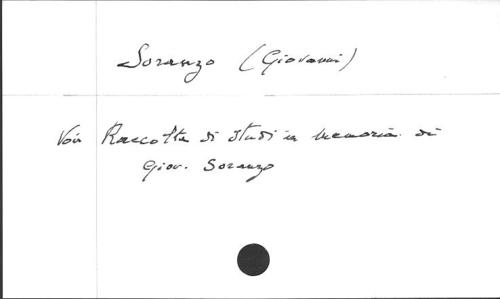 Soranzo (Giovanni)
Voir Raccolta di studi in memoria di
Giov. Soranzo